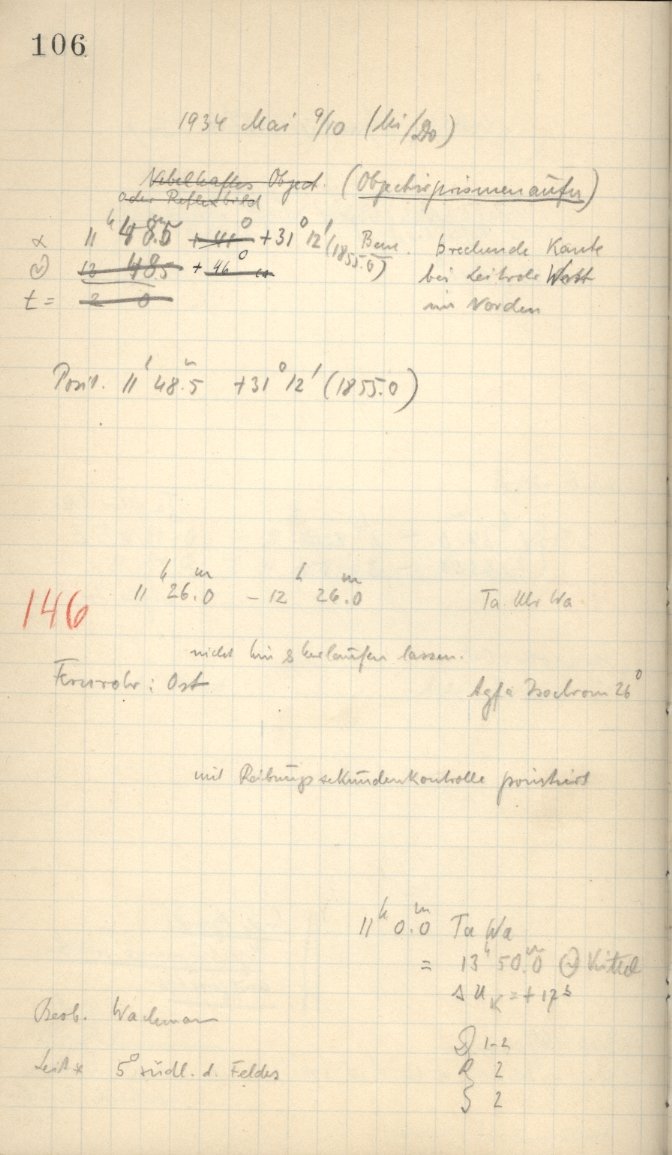 106
1934 Mai 9/10 (Mi/Do)
Nebelhaftes Object. (Objectivprismenaufn)
oder Reflexbild
α 11h 48.5m + 41° +31° 12' (1855.0) Bem. brechende Kante
13 48.5 + 46° bei Leitrohr West
t = 2 0 im Norden
Posit. 11h 48m.5 +31° 12' (1855.0)
146 11h 26.0m – 12h 26.0m Ta Uhr Wa
nicht hin & herlaufen lassen.
Fernrohr: Ost Agfa Isochrom 26°
mit Reibungssekundenkontrolle pointiert
11h 0.0m Ta Wa
= 13h 50.0m Kittel
Δ U K = + 17s
Beob. Wachmann
1-2
Leit * 5° südl. d. Feldes 2
2